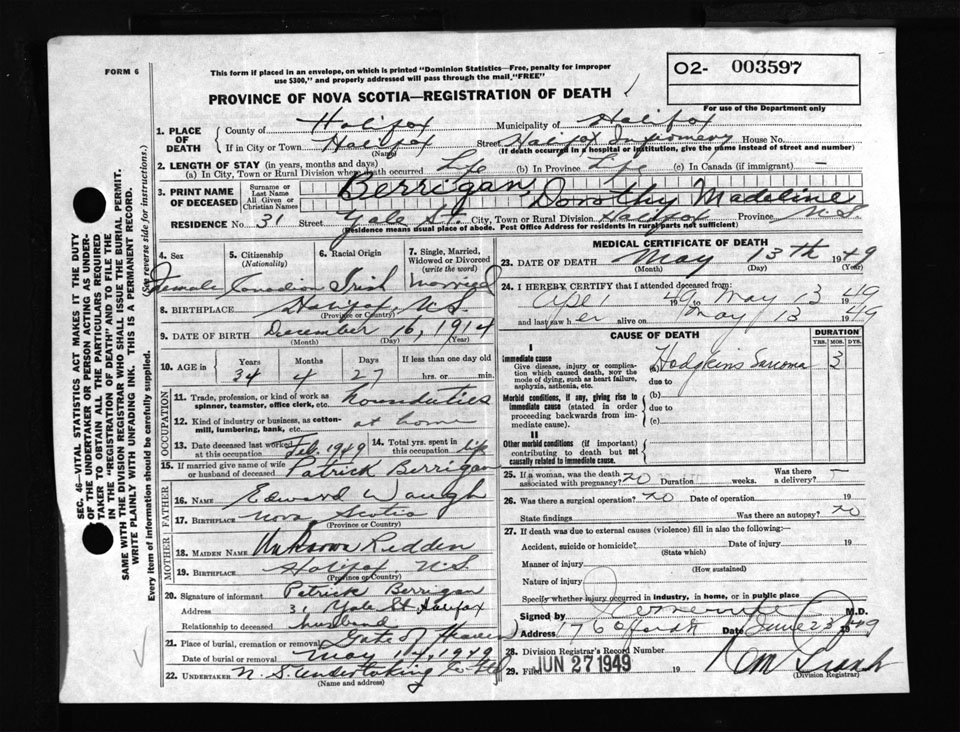 FORM 6
This form if placed in an envelope, on which is printed "Dominion Statistics—Free, penalty for improper
use $300," and properly addressed will pass through the mail, "FREE"
02- 003597
PROVINCE OF NOVA SCOTIA—REGISTRATION OF DEATH
For use of the Department only
1. PLACE OF DEATH
County of Halifax Municipality of Halifax
If in City or Town Halifax Street Halifax Infirmary House No.
(Name) (If death occurred in a hospital or institution, give the name instead of street and number)
2. LENGTH OF STAY (in years, months and days)
(a) In City, Town or Rural Division where death occurred Life (b) In Province Life (c) In Canada (if immigrant) —
3. PRINT NAME OF DECEASED
Surname or Last Name Berrigan,
All Given or Christian Names Dorothy Madeline
RESIDENCE No. 31 Street Yale St. City, Town or Rural Division Halifax Province N.S.
(Residence means usual place of abode. Post Office Address for residents in rural parts not sufficient)
4. Sex
Female
5. Citizenship
(Nationality)
Canadian
6. Racial Origin
Irish
7. Single, Married,
Widowed or Divorced
(write the word)
Married
8. BIRTHPLACE Halifax N.S.
(Province or Country)
9. DATE OF BIRTH December 16, 1914
(Month) (Day) (Year)
10. AGE in Years Months Days If less than one day old
34 4 27 hrs. or min.
OCCUPATION
11. Trade, profession, or kind of work as
spinner, teamster, office clerk, etc. Housduties
12. Kind of industry or business, as cotton-
mill, lumbering, bank, etc. at home
13. Date deceased last worked
at this occupation Feb. 1949
14. Total yrs. spent in
this occupation life
15. If married give name of wife
or husband of deceased Patrick Berrigan
FATHER
16. NAME Edward Waugh
17. BIRTHPLACE Nova Scotia
(Province or Country)
MOTHER
18. MAIDEN NAME Unknown Redden
19. BIRTHPLACE Halifax N.S.
(Province or Country)
20. Signature of informant Patrick Berrigan
Address 31 Yale St Halifax
Relationship to deceased husband
21. Place of burial, cremation or removal Gate of Heaven
Date of burial or removal May 14, 1949
22. UNDERTAKER N.S. Undertaking Co Ltd
(Name and address)
MEDICAL CERTIFICATE OF DEATH
23. DATE OF DEATH May 13th 1949
(Month) (Day) (Year)
24. I HEREBY CERTIFY that I attended deceased from:
49 to May 13 1949
and last saw her alive on May 13 1949
CAUSE OF DEATH
DURATION
YRS. MOS. DYS.
I
Immediate cause
Give disease, injury or complica-
tion which caused death, NOT the
mode of dying, such as heart failure,
asphyxia, asthenia, etc.
(a) Hodgkins Sarcoma 3
due to
Morbid conditions, if any, giving rise to
immediate cause (stated in order
proceeding backwards from im-
mediate cause).
(b)
due to
(c)
II
Other morbid conditions (if important)
contributing to death but not
causally related to immediate cause.
25. If a woman, was the death
associated with pregnancy? no Duration weeks. Was there
a delivery? —
26. Was there a surgical operation? no Date of operation 19
State findings Was there an autopsy? no
27. If death was due to external causes (violence) fill in also the following:—
Accident, suicide or homicide? Date of injury 19
(State which)
Manner of injury
(How sustained)
Nature of injury
Specify whether injury occurred in industry, in home, or in public place
Signed by M.D.
Address Date June 23 1949
28. Division Registrar's Record Number
29. Filed JUN 27 1949 19
(Division Registrar)
SEC. 46—VITAL STATISTICS ACT MAKES IT THE DUTY
OF THE UNDERTAKER OR PERSON ACTING AS UNDER-
TAKER TO OBTAIN ALL THE PARTICULARS REQUIRED
IN THE "REGISTRATION OF DEATH" AND TO FILE THE
SAME WITH THE DIVISION REGISTRAR WHO SHALL ISSUE THE BURIAL PERMIT.
WRITE PLAINLY WITH UNFADING INK. THIS IS A PERMANENT RECORD.
Every item of information should be carefully supplied. (See reverse side for instructions.)